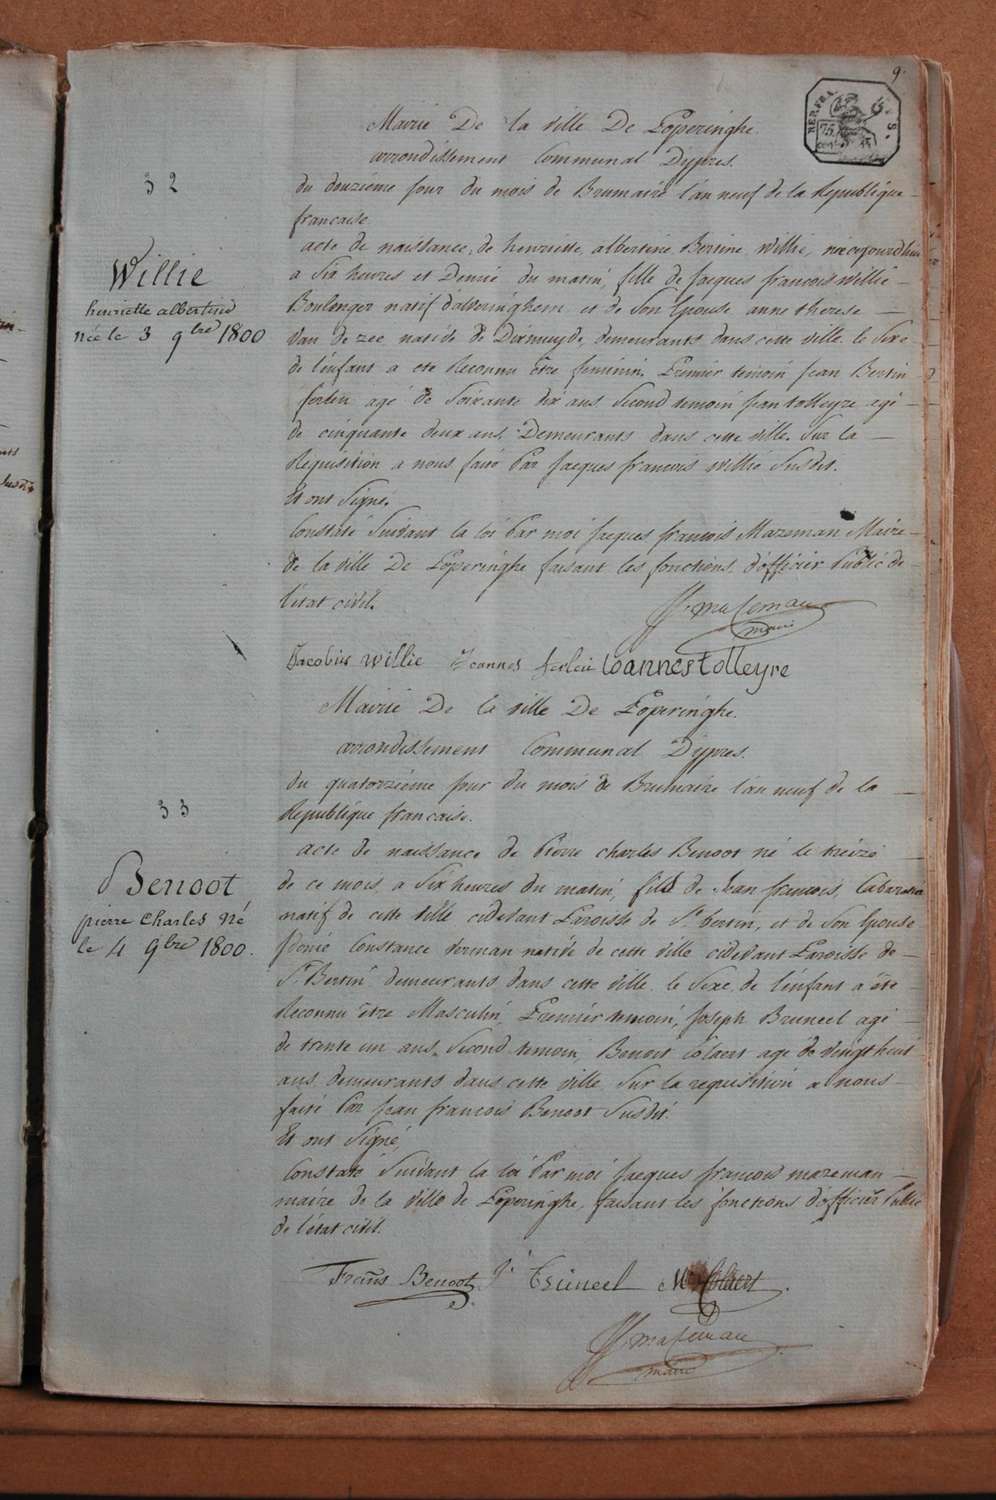 9.
REP. FRA.
75
cent
Mairie De la ville De Poperinghe.
arrondissement Communal Dypres.
32
du douzième jour du mois de Brumaire l'an neuf de la Republique
francaise
acte de naissance, de henriette albertine Bertine Willie, née cejourdhui
Willie
henriette albertine
née le 3 9bre 1800
a Six heures et Demie du matin, fille de Jacques francois Willie
Boulenger natif d'alveringhem et de Son Epouse anne therese
Van de zee native de Dixmuyde, demeurants dans cette ville le Sexe
de l'enfant a eté Reconnu être feminin. Premier temoin Jean Bertin
ferlin agé de Soixante dix ans Second temoin Jean tolleyre agé
de cinquante deux ans, Demeurants dans cette ville. Sur la
Requisition a nous faite Par Jacques francois Willie Susdit.
Et ont Signé.
Constaté Suivant la loi Par moi Jacques francois Mazeman Maire
de la ville De Poperinghe faisant les fonctions d'officier Public de
l'etat civil.
mazeman
maire
Jacobus Willie Joannes ferlin Ioannes tolleyre
Mairie De la ville De Poperinghe.
arrondissement Communal Dypres.
du quatorzième jour du mois de Brumaire l'an neuf de la
33
Republique francaise.
acte de naissance de Pierre charles Benoot né le treize
Benoot
pierre Charles Né
le 4 9bre 1800.
de ce mois, a Six heures du matin, fils de Jean francois, Cabaretier
natif de cette ville cidevant Paroisse de St bertin, et de Son Epouse
Constance Verman native de cette ville cidevant Paroisse de
St Bertin demeurants dans cette ville le Sexe de l'enfant a été
Reconnu être Masculin Premier temoin, Joseph Bruneel agé
de trente un ans, Second temoin, Benoit Colaert agé de vingt huit
ans demeurants dans cette ville Sur la requisition a nous
faite Par Jean francois Benoot Susdit.
Et ont Signé,
Constaté Suivant la loi Par moi Jacques francois mazeman
maire de la ville de Poperinghe, faisant les fonctions d'officier Public
de l'etat civil.
Frañs Benoot J. Bruneel Colaert
mazeman
maire